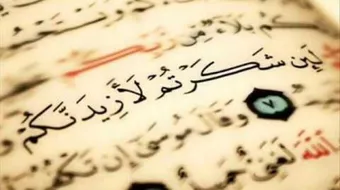 كم بلاء من ربكم
لَئِن شَكَرْتُمْ لَأَزِيدَنَّكُمْ
٧ وَقَالَ مُوسَىٰ إِن تَكْفُرُ
الله لغني حميد